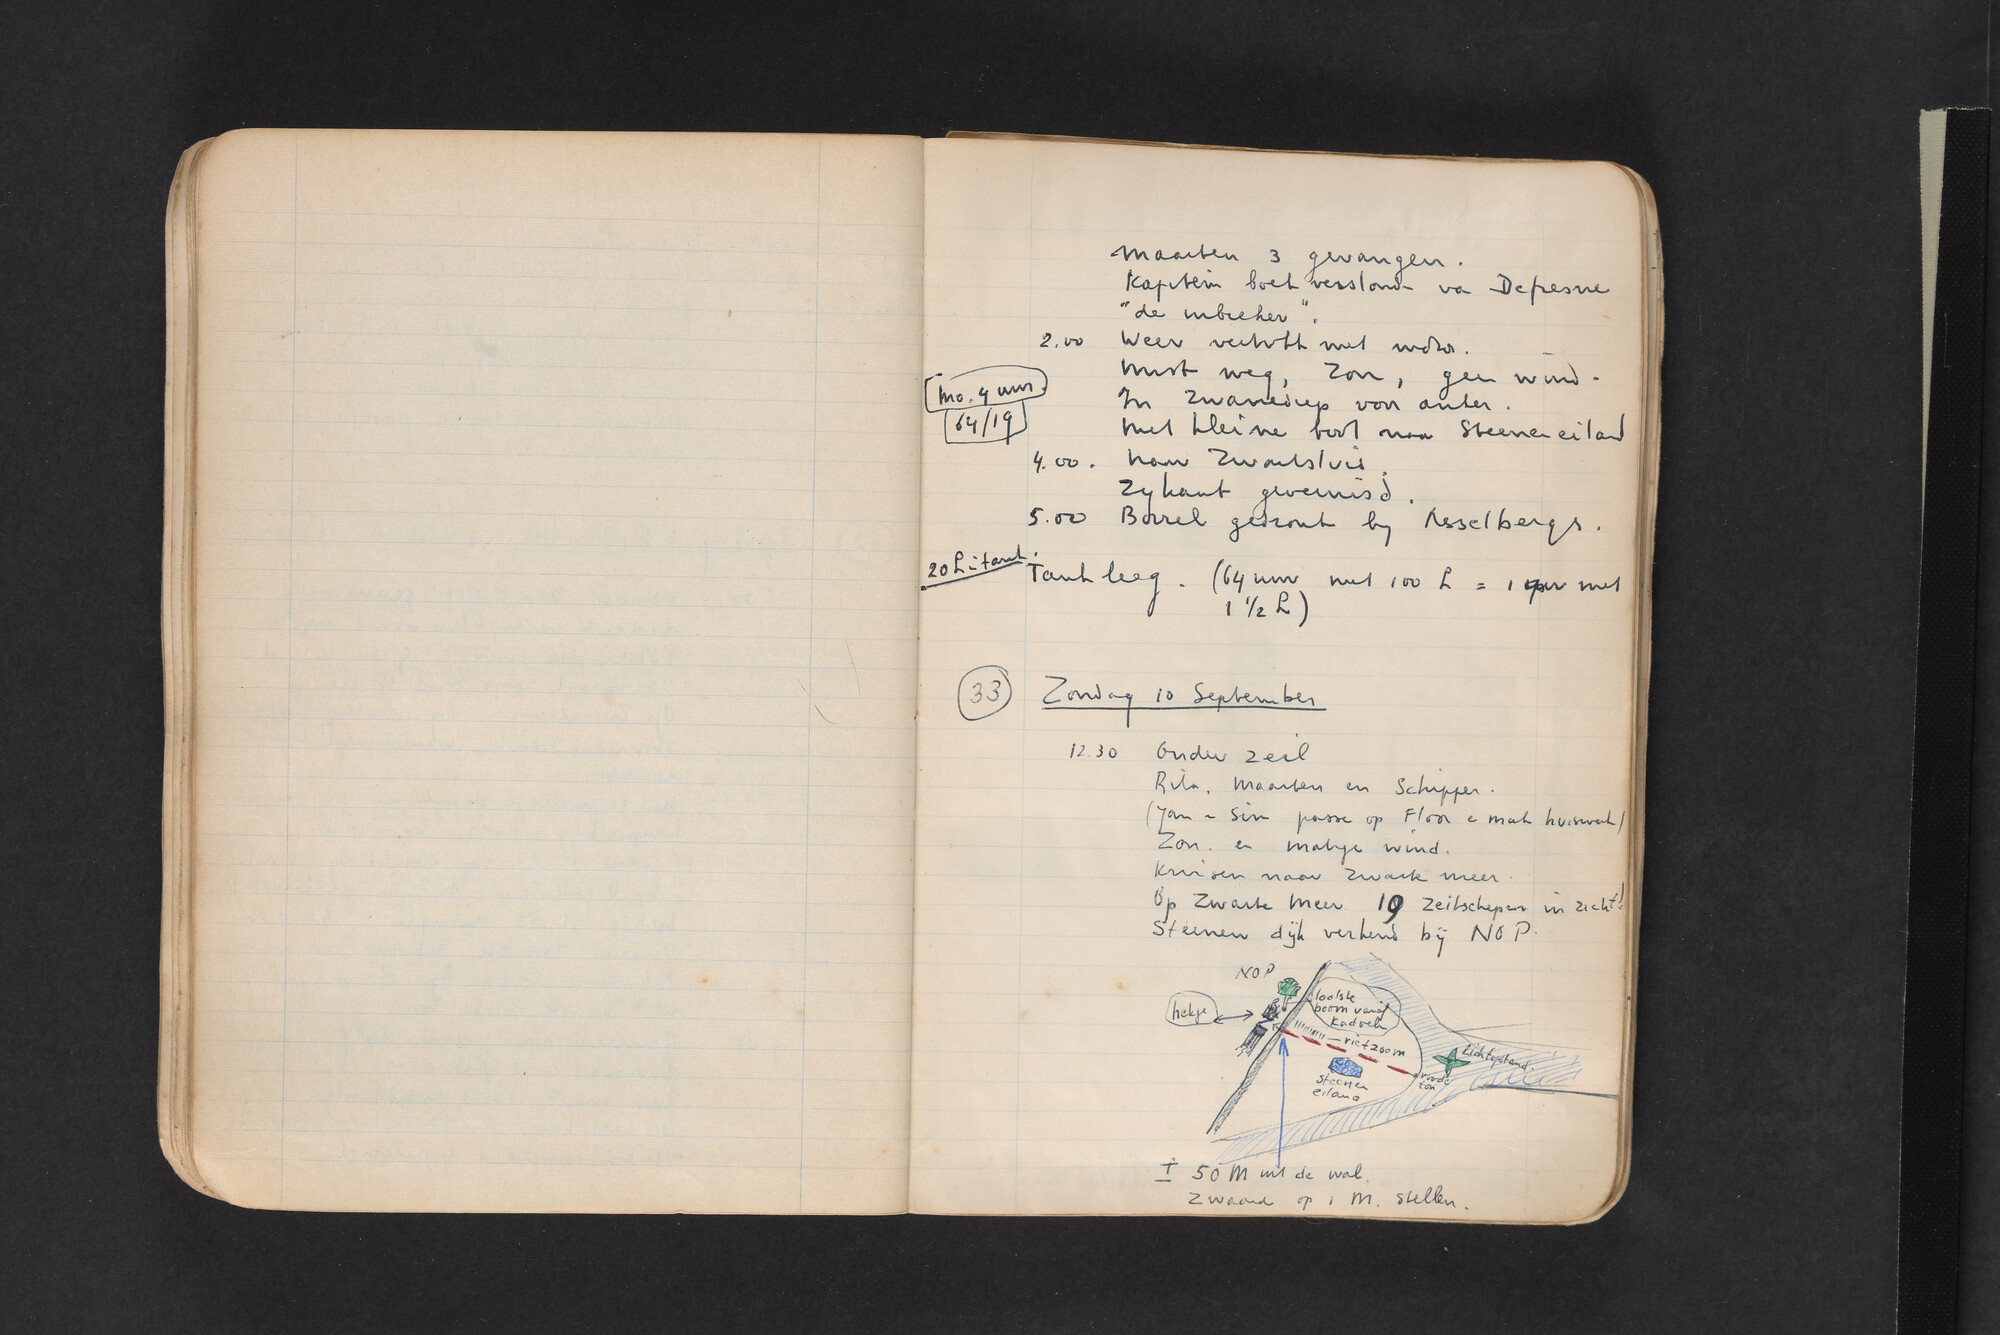 Maarten 3 gevangen.
Kapitein boek verslond va Defresne
"de inbreker".
2.00 Weer vertrokk met motor.
Mist weg, zon, geen wind.
mo. 4 uur.
In Zwanediep voor anker.
64/19
Met kleine boot naa Steeneneiland
4.00. Naar Zwartsluis.
Zykant gevernisd.
5.00 Borrel gedronk by Asselbergs.
20 L i tank.
Tank leeg. (64 uur met 100 L = 1 uur met
1 1/2 L)
33 Zondag 10 September
12.30 Onder zeil
Rita, Maarten en Schipper.
(Jan - Sim passe op Floor e mak huiswerk)
Zon. en matige wind.
Kruisen naar Zwarte meer.
Op Zwarte Meer 19 zeilschepen in zicht!
Steenen dijk verkend bij NOP.
NOP
hekje
laatste
boom vanaf
Kadoelen
rietzoom
Lichtopstand.
steenen
eiland
roode
ton
± 50 M uit de wal.
Zwaard op 1 M. stellen.